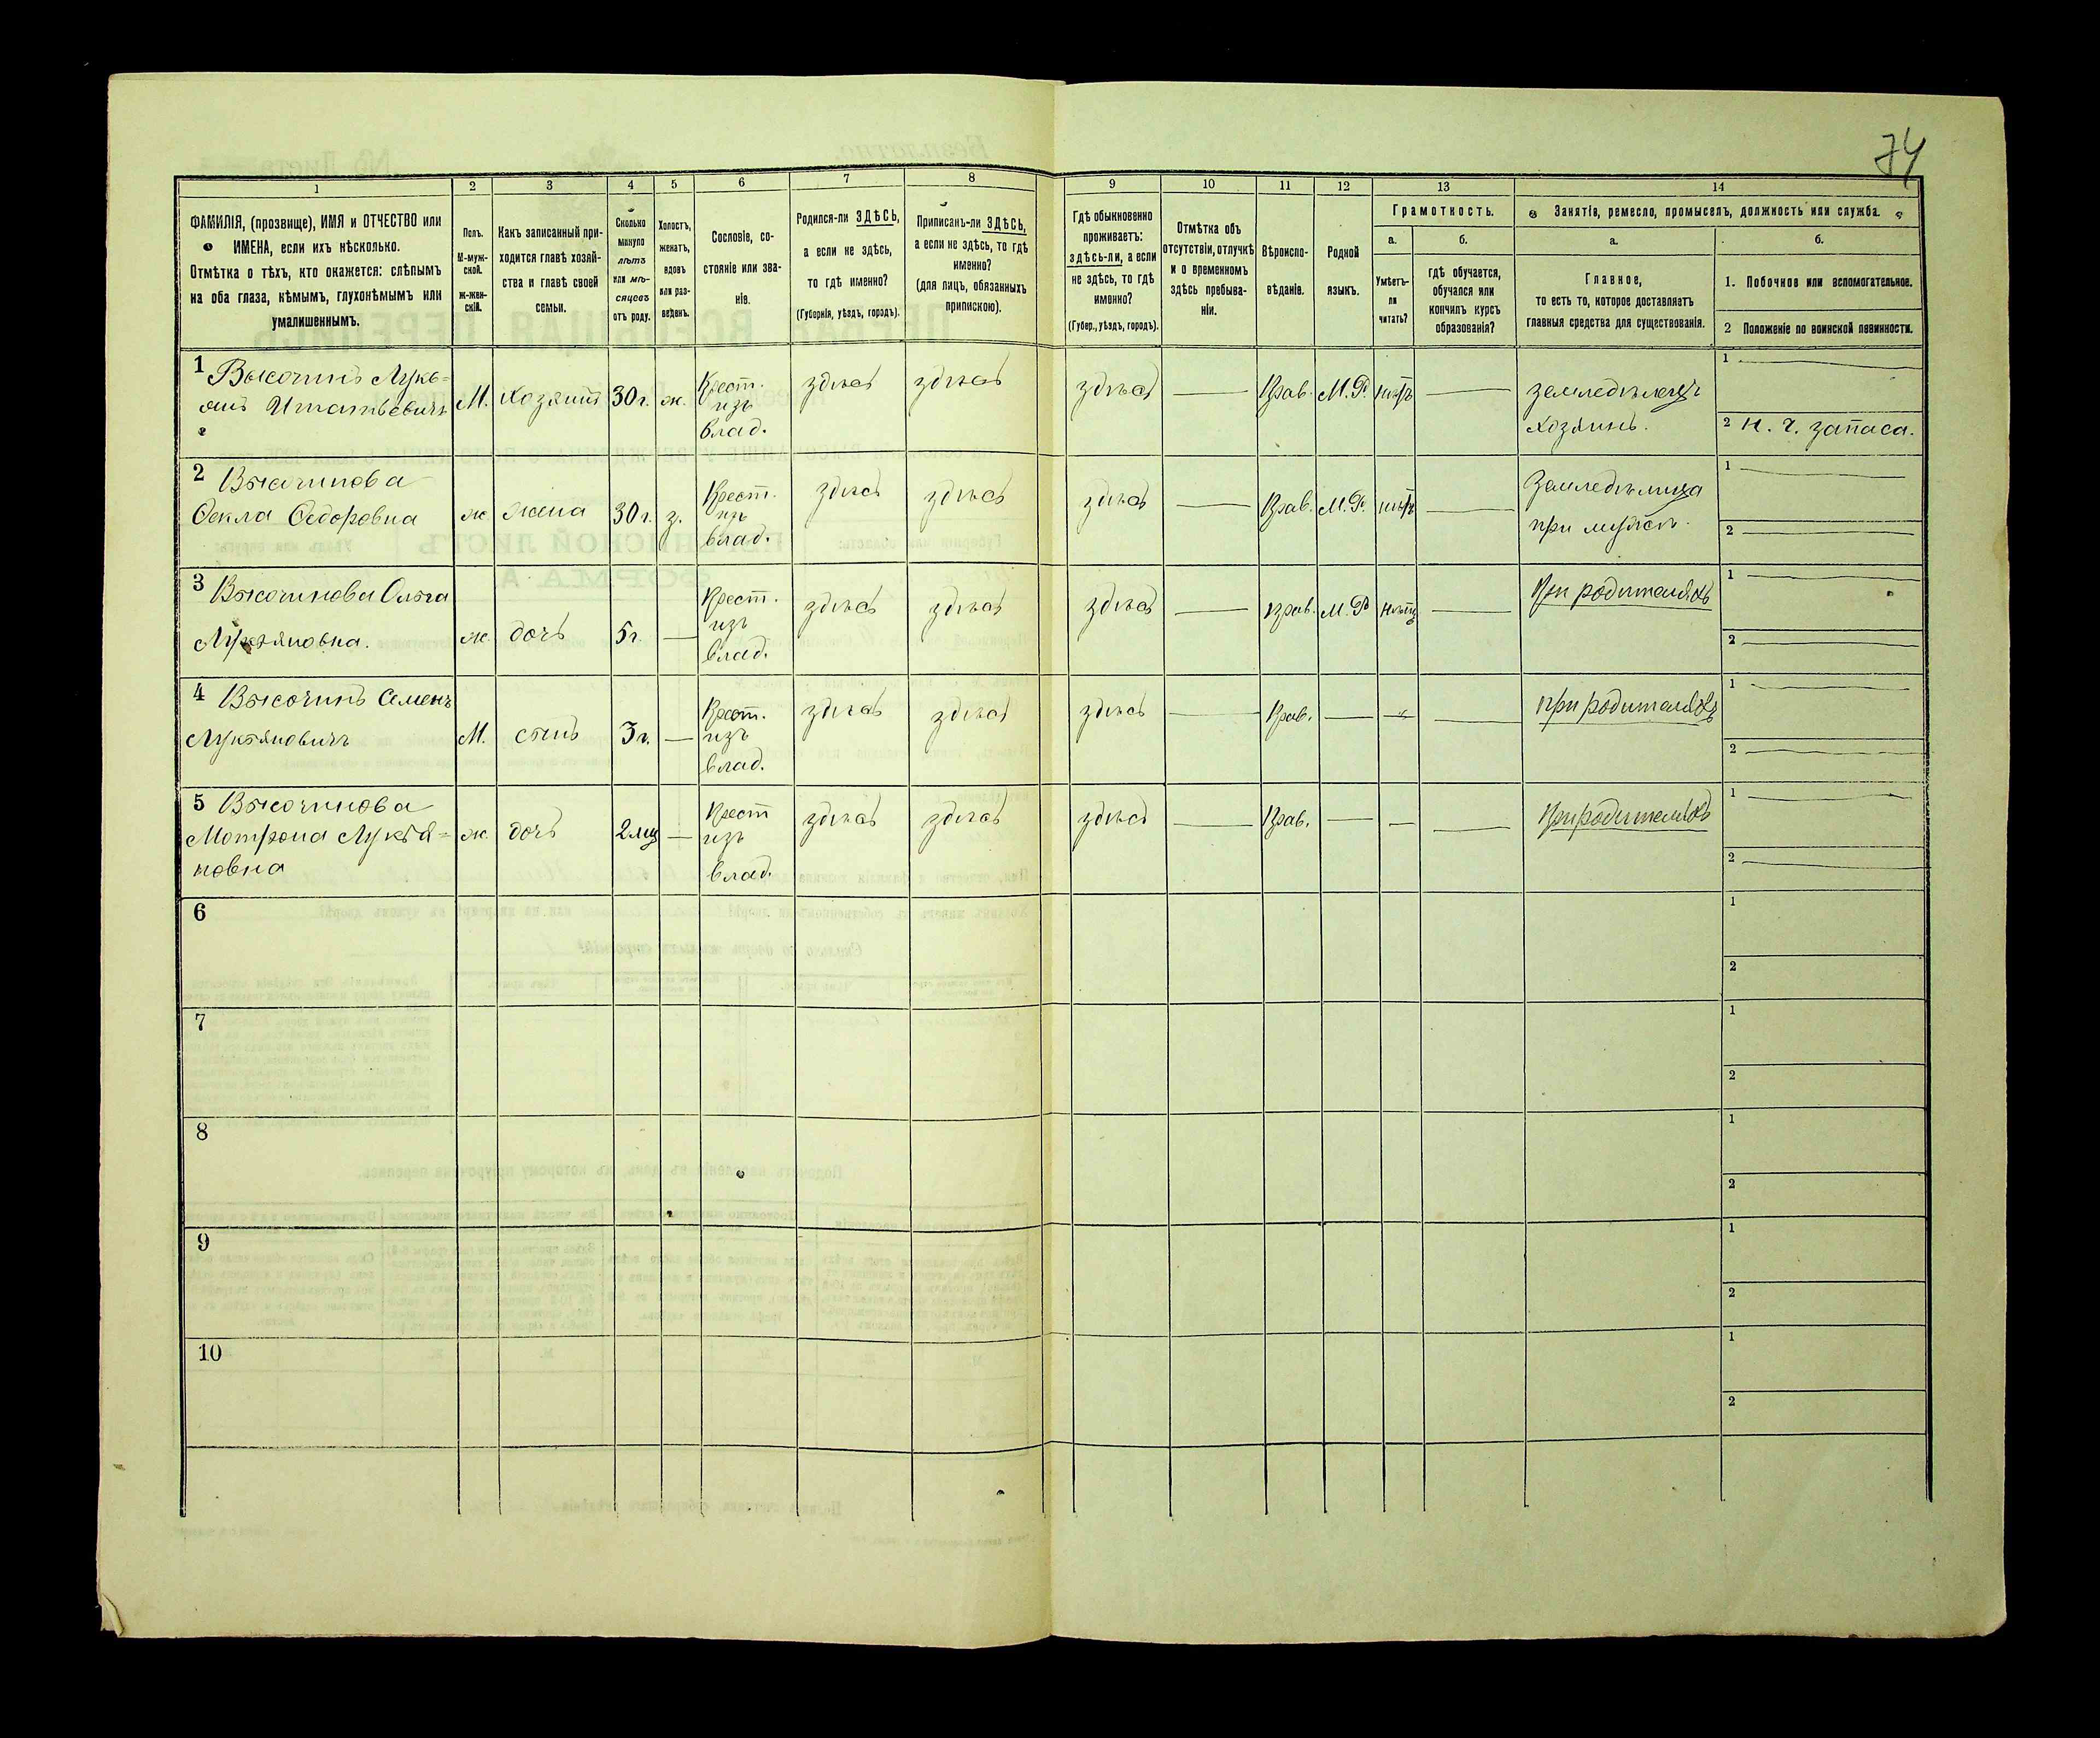 74
1 2 3 4 5 6 7 8 9 10 11 12 13 14
ФАМИЛІЯ, (прозвище), ИМЯ и ОТЧЕСТВО или
ИМЕНА, если ихъ нѣсколько.
Отмѣтка о тѣхъ, кто окажется: слѣпымъ
на оба глаза, нѣмымъ, глухонѣмымъ или
умалишеннымъ.
Полъ.
М-муж-
ской.
Ж-жен-
скій.
Какъ записанный при-
ходится главѣ хозяй-
ства и главѣ своей
семьи.
Сколько
минуло
лѣтъ
или мѣ-
сяцевъ
отъ роду.
Холостъ,
женатъ,
вдовъ
или раз-
веденъ.
Сословіе, со-
стояніе или зва-
ніе.
Родился-ли ЗДѢСЬ,
а если не здѣсь,
то гдѣ именно?
(Губернія, уѣздъ, городъ).
Приписанъ-ли ЗДѢСЬ,
а если не здѣсь, то гдѣ
именно?
(для лицъ, обязанныхъ
припискою).
Гдѣ обыкновенно
проживаетъ:
здѣсь-ли, а если
не здѣсь, то гдѣ
именно?
(Губер., уѣздъ, городъ).
Отмѣтка объ
отсутствіи, отлучкѣ
и о временномъ
здѣсь пребыва-
ніи.
Вѣроиспо-
вѣданіе.
Родной
языкъ.
Грамотность.
а.
Умѣетъ-
ли
читать?
б.
гдѣ обучается,
обучался или
кончилъ курсъ
образованія?
Занятія, ремесло, промыселъ, должность или служба.
а.
Главное,
то есть то, которое доставляетъ
главныя средства для существованія.
б.
1. Побочное или вспомогательное.
2 Положеніе по воинской повинности.
1 Высочинъ Лукь=
янъ Игнатьевичъ
М.
хозяинъ
30 г.
ж.
Крест.
изъ
влад.
здѣсь
здѣсь
здѣсь
Прав.
М.Р.
нѣтъ
земледѣлецъ
хозяинъ.
1
2 н. ч. запаса.
2 Высочинова
Ѳекла Ѳедоровна
ж
жена
30 г.
з.
Крест.
изъ
влад.
здѣсь
здѣсь
здѣсь
Прав.
М.Р.
нѣтъ
Земледѣлица
при мужѣ.
1
2
3 Высочинова Ольга
Лукьяновна.
ж.
дочь
5 г.
Крест.
изъ
влад.
здѣсь
здѣсь
здѣсь
Прав.
М.Р
нѣтъ
При родителяхъ
1
2
4 Высочинъ Семенъ
Лукьяновичъ
М.
сынъ
3 г.
Крест.
изъ
влад.
здѣсь
здѣсь
здѣсь
Прав.
при родителяхъ
1
2
5 Высочинова
Мотрона Лукья=
новна
ж.
дочь
2 мц
Крест
изъ
влад.
здѣсь
здѣсь
здѣсь
Прав.
При родителяхъ
1
2
6
1
2
7
1
2
8
1
2
9
1
2
10
1
2